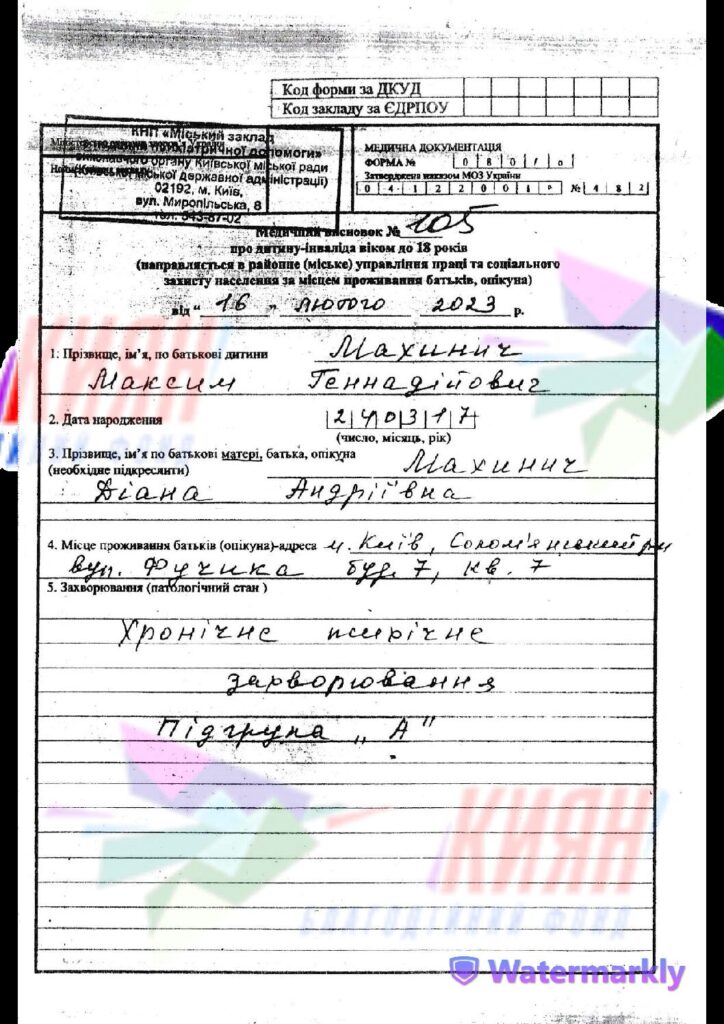 Код форми за ДКУД
Код закладу за ЄДРПОУ
КНП «Міський заклад
допомоги»
виконавчого органу Київської міської ради
(Київської міської державної адміністрації)
02192, м. Київ,
вул. Миропільська, 8
тел. 543-87-02
МЕДИЧНА ДОКУМЕНТАЦІЯ
ФОРМА № 080/о
Затверджена наказом МОЗ України
04122001р №482
Медичний висновок № 105
про дитину-інваліда віком до 18 років
(направляється в районне (міське) управління праці та соціального
захисту населення за місцем проживання батьків, опікуна)
від " 16 " лютого 2023 р.
1. Прізвище, ім'я, по батькові дитини Махинич
Максим Геннадійович
2. Дата народження 240317
(число, місяць, рік)
3. Прізвище, ім'я по батькові матері, батька, опікуна
(необхідне підкреслити) Махинич
Діана Андріївна
4. Місце проживання батьків (опікуна)-адреса м. Київ, Солом'янський р-н
вул. Фучика буд. 7, кв. 7
5. Захворювання (патологічний стан )
Хронічне психічне
захворювання
Підгрупа „А"
КИЯН
КИЯН
БЛАГОДІЙНИЙ ФОНД
Watermarkly